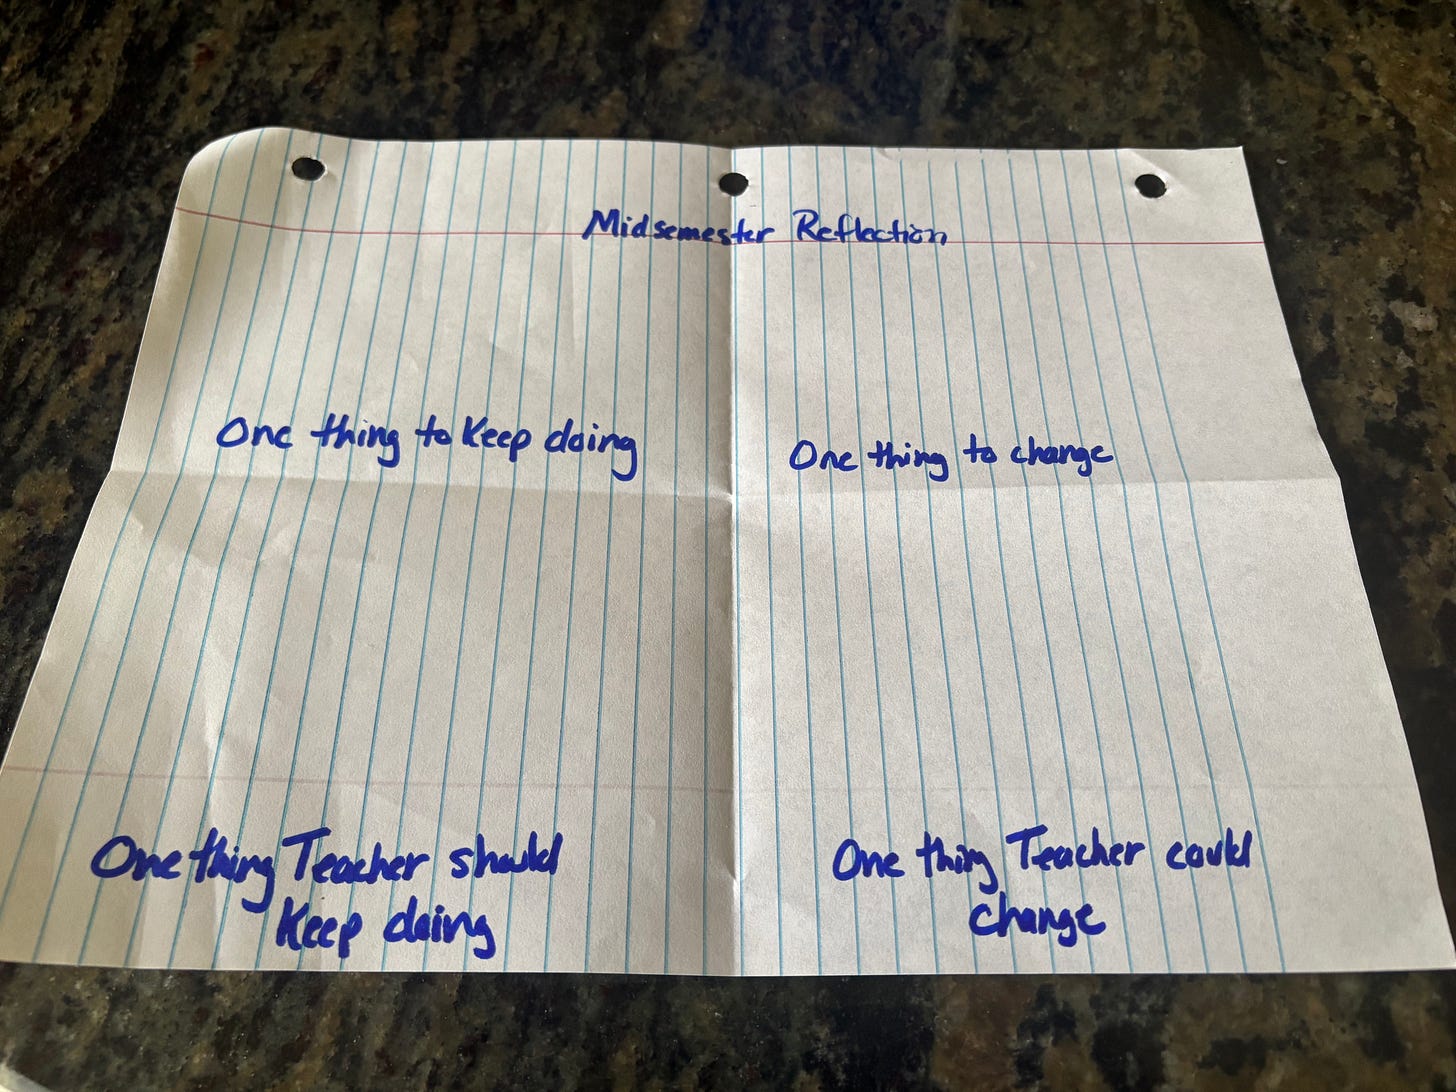 Midsemester Reflection
One thing to Keep doing
One thing to change
One thing Teacher should
Keep doing
One thing Teacher could
change